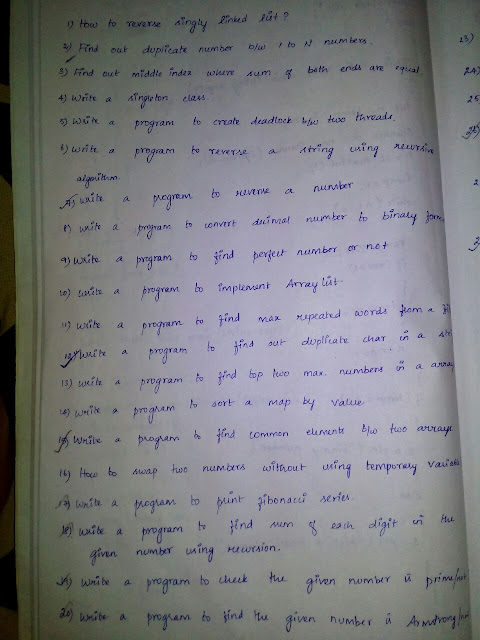 1) How to reverse singly linked list?
2) Find out duplicate number b/w 1 to N numbers.
3) Find out middle index where sum of both ends are equal.
4) Write a singleton class.
5) Write a program to create deadlock b/w two threads.
6) Write a program to reverse a string using recursive
algorithm.
7) Write a program to reverse a number
8) Write a program to convert decimal number to binary form
9) Write a program to find perfect number or not
10) Write a program to implement Array list
11) Write a program to find max repeated words from a fi
12) Write a program to find out duplicate char in a str
13) Write a program to find top two max. numbers in a array
14) Write a program to sort a map by value
15) Write a program to find common elements b/w two arrays
16) How to swap two numbers without using temporary variab
17) Write a program to print fibonacci series.
18) Write a program to find sum of each digit in the
given number using recursion.
19) Write a program to check the given number is prime/not
20) Write a program to find the given number is Armstrong/n
23)
24)
25